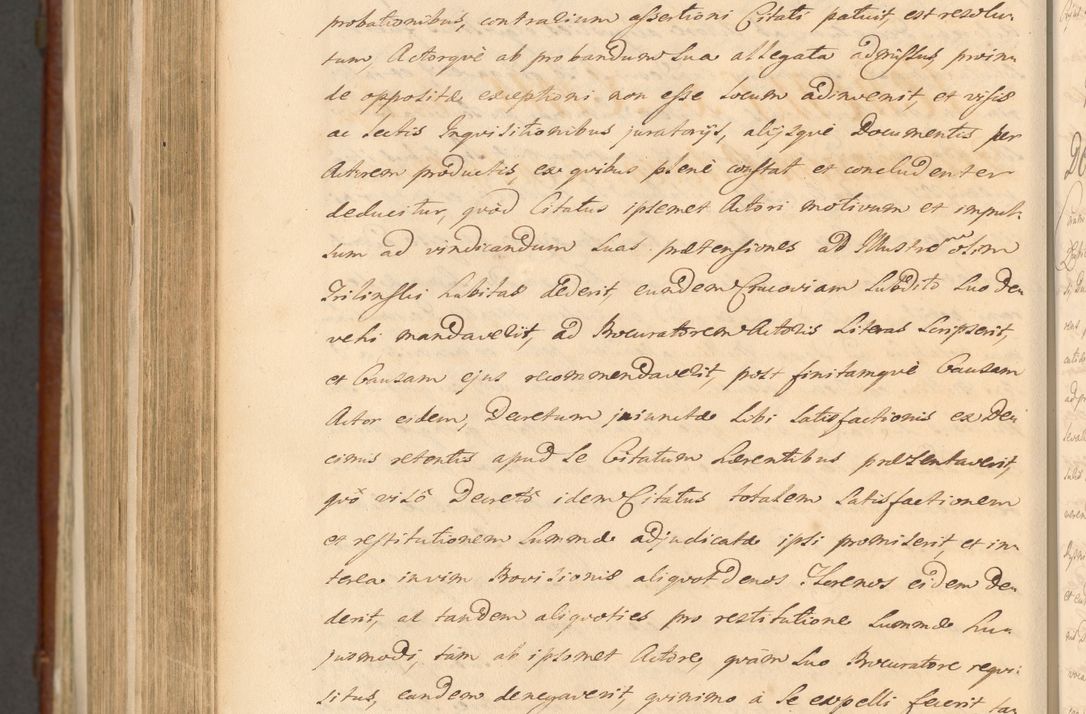 probationibus, contrarium assertioni Citati patuit, est resolu-
tum, Actorquè ab probandum sua allegata admissus, proin-
de oppositæ exceptioni non esse locum adinvenit, et visis
ac lectis Inquisitionibus juratorijs, alijsquè Documentis per
Actorem productis, ex quibus plenè constat et concludenter
deducitur, quòd Citatus ipsemet Actori motivum et impul-
sum ad vindicandum suas prætensiones ad Illustrem olim
Trilinski habitas dederit, eundem Cracoviam subdito suo de-
vehi mandaverit, ad Procuratorem Actoris Literas scripserit,
et Causam ejus recommendaverit, post finitamquè Causam
Actor eidem, Decretum injunctæ sibi satisfactionis ex De-
cimis retentis apud se Citatum hærentibus præsentaverit,
quô visô Decretô idem Citatus totalem satisfactionem
et restitutionem Summæ adjudicatæ ipsi promiserit, et in-
terea in vim Provisionis aliquot denos Florenos eidem de-
derit, at tandem aliquoties pro restitutione Summæ hu-
jusmodi, tàm ab ipsomet Actore, quàm suo Procuratore requi-
situs, eandem denegaverit, quinimo à se expelli fecerit